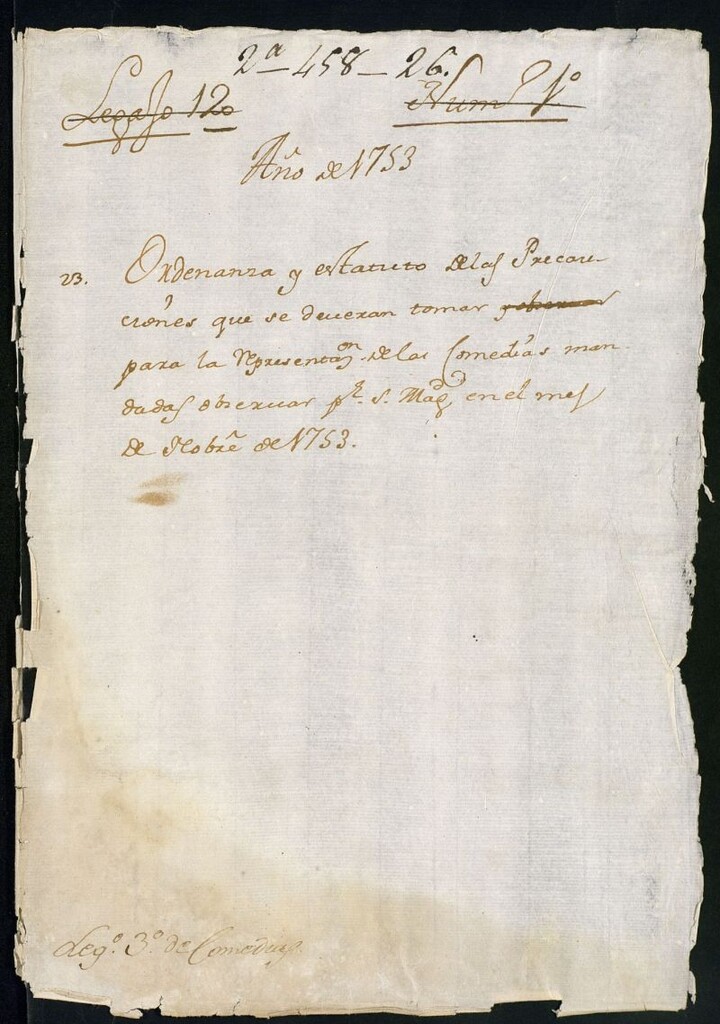 2ª-458-26.
Legajo 12º
Num.º 1º
Año de 1753
23. Ordenanza y estatuto delas Precau-
ciones que se deveran tomar y observar
para la Representaⁿ. delas Comedias man
dadas observar pʳ. S. Magᵈ. en el mes
de Nobrẽ de 1753.
Legº. 3º. de Comedias.